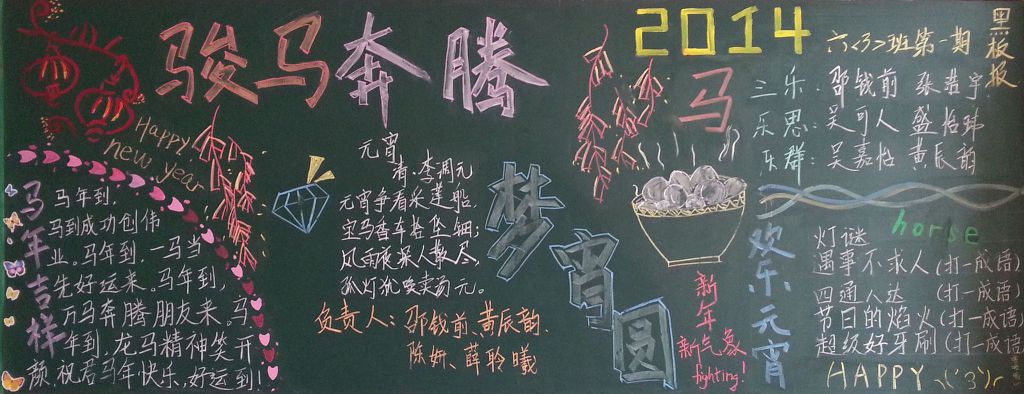 骏马奔腾
Happy
new year
马年吉祥
马年到，
马到成功创伟
业。马年到，一马当
先好运来。马年到，
万马奔腾朋友来。马
年到，龙马精神笑开
颜。祝君马年快乐，好运到！
元宵
清·李调元
元宵争看采莲船，
宝马香车拾坠钿；
风雨夜深人散尽，
孤灯犹唤卖汤元。
负责人：邵钱前、黄辰韵、
陈妍、薛聆曦
梦宵圆
2014
马
新年
新气象
fighting!
六<3>班第一期
黑板报
三乐：邵钱前
乐思：吴可人 盛怡玮
乐群：吴嘉怡 黄辰韵
欢乐元宵
horse
灯谜
遇事不求人（打一成语）
四通八达（打一成语）
节日的焰火（打一成语）
超级好牙刷（打一成语）
HAPPY